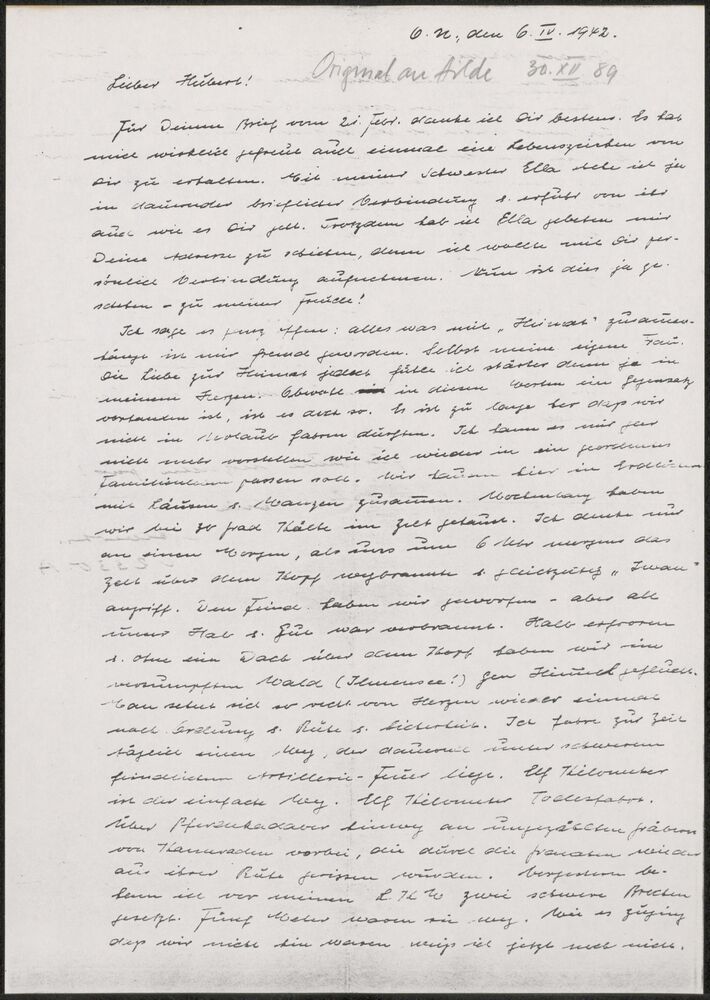 O.N., den 6. IV. 1942.
Original an Hilde 30. XII 89
Lieber Hubert!
Für Deinen Brief vom 21. Febr. danke ich Dir bestens. Es hat
mich wirklich gefreut auch einmal ein Lebenszeichen von
Dir zu erhalten. Mit meiner Schwester Ella stehe ich ja
in dauernder brieflicher Verbindung u. erfuhr von ihr
auch wie es Dir geht. Trotzdem hab ich Ella gebeten mir
Deine Adresse zu schicken, denn ich wollte mit Dir per-
sönlich Verbindung aufnehmen. Nun ist dies ja ge-
schehen – zu meiner Freude!
Ich sage es ganz offen: alles was mit „Heimat" zusammen-
hängt ist mir fremd geworden. Selbst meine eigene Frau.
Die Liebe zur Heimat jedoch fühle ich stärker denn je in
meinem Herzen. Obwohl in diesen Worten ein Gegensatz
vorhanden ist, ist es doch so. Es ist zu lange her dass wir
nicht in Urlaub fahren durften. Ich kann es mir gar
nicht mehr vorstellen wie ich wieder in ein geordnetes
Familienleben passen soll. Wir hausen hier in Erdlöchern
mit Läusen u. Wanzen zusammen. Wochenlang haben
wir bei 30 Grad Kälte im Zelt gehaust. Ich denke nur
an einen Morgen, als uns um 6 Uhr morgens das
Zelt über dem Kopf wegbrannte u. gleichzeitig „Iwan"
angriff. Den Feind haben wir geworfen – aber all
unser Hab u. Gut war verbrannt. Halb erfroren
u. ohne ein Dach über dem Kopf haben wir im
versumpften Wald (Ilmensee!) gen Himmel geflucht.
Man sehnt sich so recht von Herzen wieder einmal
nach Ordnung u. Ruhe u. Sicherheit. Ich fahre zur Zeit
täglich einen Weg, der dauernd unter schwerem
feindlichen Artillerie-Feuer liegt. Elf Kilometer
ist der einfache Weg. Elf Kilometer Todesfahrt.
Über Pferdekadaver hinweg an ungezählten Gräbern
von Kameraden vorbei, die durch die Granaten wieder
aus ihrer Ruhe gerissen wurden. Vorgestern be-
kam ich vor meinen L.K.W zwei schwere Brocken
gesetzt. Fünf Meter waren sie weg. Wie es zuging
dass wir nicht hin waren weiss ich jetzt noch nicht.